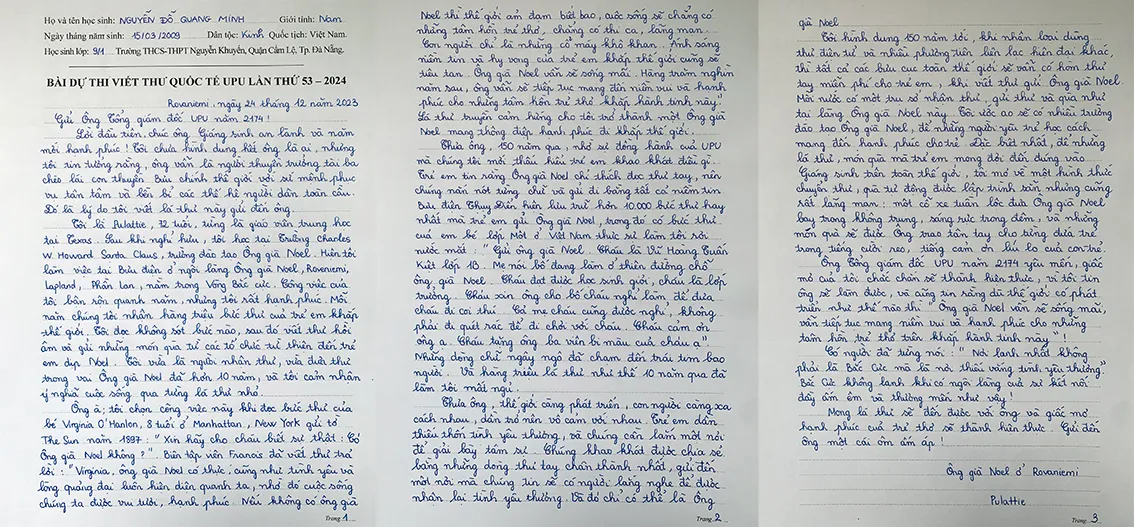 Họ và tên học sinh: NGUYỄN ĐỖ QUANG MINH Giới tính: Nam
Ngày tháng năm sinh: 15/03/2009 Dân tộc: Kinh Quốc tịch: Việt Nam.
Học sinh lớp: 9/1 Trường THCS-THPT Nguyễn Khuyến, Quận Cẩm Lệ, Tp. Đà Nẵng.
BÀI DỰ THI VIẾT THƯ QUỐC TẾ UPU LẦN THỨ 53 – 2024
Rovaniemi, ngày 24 tháng 12 năm 2023
Gửi Ông Tổng giám đốc UPU năm 2174!
Lời đầu tiên, chúc ông Giáng sinh an lành và năm
mới hạnh phúc! Tôi chưa hình dung hết ông là ai, nhưng
tôi tin tưởng rằng, ông vẫn là người thuyền trưởng tài ba
chèo lái con thuyền Bưu chính thế giới với sứ mệnh phục
vụ tận tâm và bền bỉ các thế hệ người dân toàn cầu.
Đó là lý do tôi viết lá thư này gửi đến ông.
Tôi là Pulattie, 72 tuổi, từng là giáo viên trung học
tại Texas. Sau khi nghỉ hưu, tôi học tại Trường Charles
W. Howard Santa Claus, trường đào tạo Ông già Noel. Hiện tôi
làm việc tại Bưu điện ở ngôi làng Ông già Noel, Rovaniemi,
Lapland, Phần Lan, nằm trong Vòng Bắc cực. Công việc của
tôi bận rộn quanh năm, nhưng tôi rất hạnh phúc. Mỗi
năm chúng tôi nhận hàng triệu bức thư của trẻ em khắp
thế giới. Tôi đọc không sót bức nào, sau đó viết thư hồi
âm và gửi những món quà từ các tổ chức từ thiện đến trẻ
em dịp Noel. Tôi vừa là người nhận thư, vừa đưa thư
trong vai Ông già Noel đã hơn 10 năm, và tôi cảm nhận
ý nghĩa cuộc sống qua từng lá thư nhỏ.
Ông à, tôi chọn công việc này khi đọc bức thư của
bé Virginia O'Hanlon, 8 tuổi ở Manhattan, New York gửi tờ
The Sun năm 1897: "Xin hãy cho cháu biết sự thật: Có
Ông già Noel không?". Biên tập viên Francis đã viết thư trả
lời: "Virginia, ông già Noel có thực, cũng như tình yêu và
lòng quảng đại luôn hiện diện quanh ta, nhờ đó cuộc sống
chúng ta được vui tươi, hạnh phúc. Nếu không có ông già
Trang 1
Noel thì thế giới ảm đạm biết bao, cuộc sống sẽ chẳng có
những tâm hồn trẻ thơ, chẳng có thi ca, lãng mạn.
Con người chỉ là những cỗ máy khô khan. Ánh sáng
niềm tin và hy vọng của trẻ em khắp thế giới cũng sẽ
tiêu tan. Ông già Noel vẫn sẽ sống mãi. Hàng trăm nghìn
năm sau, ông vẫn sẽ tiếp tục mang đến niềm vui và hạnh
phúc cho những tâm hồn trẻ thơ khắp hành tinh này".
Lá thư truyền cảm hứng cho tôi trở thành một Ông già
Noel mang thông điệp hạnh phúc đi khắp thế giới.
Thưa ông, 150 năm qua, nhờ sự đồng hành của UPU
mà chúng tôi mới thấu hiểu trẻ em khao khát điều gì.
Trẻ em tin rằng Ông già Noel chỉ thích đọc thư tay, nên
chúng nắn nót từng chữ và gửi đi bằng tất cả niềm tin.
Bưu điện Thụy Điển hiện lưu trữ hơn 10.000 bức thư hay
nhất mà trẻ em gửi Ông già Noel, trong đó có bức thư
của em bé lớp Một ở Việt Nam thực sự làm tôi rơi
nước mắt: "Gửi ông già Noel. Cháu là Vĩ Hoàng Tuấn
Kiệt lớp 1B. Mẹ nói bố đang làm ở thiên đường chỗ
ông già Noel. Cháu đạt được học sinh giỏi, cháu là lớp
trưởng. Cháu xin ông cho bố cháu nghỉ làm, để đưa
cháu đi coi thú. Cả mẹ cháu cũng được nghỉ, không
phải đi quét rác để đi chơi với cháu. Cháu cảm ơn
ông ạ. Cháu tặng ông ba viên bi màu của cháu ạ".
Những dòng chữ ngây ngô đã chạm đến trái tim bao
người. Và hàng triệu lá thư như thế 10 năm qua đã
làm tôi mất ngủ.
Thưa ông, thế giới càng phát triển, con người càng xa
cách nhau, dần trở nên vô cảm với nhau. Trẻ em dần
thiếu thốn tình yêu thương, và chúng cần lắm một nơi
để giãi bày tâm sự. Chúng khao khát được chia sẻ
bằng những dòng thư tay chân thành nhất, gửi đến
một nơi mà chúng tin sẽ có người lắng nghe để được
nhận lại tình yêu thương. Và đó chỉ có thể là Ông
Trang 2
già Noel
Tôi hình dung 150 năm tới, khi nhân loại dùng
thư điện tử và nhiều phương tiện liên lạc hiện đại khác,
thì tất cả các bưu cục toàn thế giới sẽ vẫn có hòm thư
tay miễn phí cho trẻ em, khi viết thư gửi Ông già Noel.
Mỗi nước có một trụ sở nhận thư, gửi thư và quà như
tại làng Ông già Noel này. Tôi ước ao sẽ có nhiều trường
đào tạo Ông già Noel, để những người yêu trẻ học cách
mang đến hạnh phúc cho trẻ. Đặc biệt nhất, để những
lá thư, món quà mà trẻ em mong đợi đến đúng vào
Giáng sinh trên toàn thế giới, tôi mơ về một hình thức
chuyển thư, quà tự động được lập trình sẵn nhưng cũng
rất lãng mạn: một cỗ xe tuần lộc đưa Ông già Noel
bay trong không trung, sáng rực trong đêm, và những
món quà sẽ được Ông trao tận tay cho từng đứa trẻ
trong tiếng cười reo, tiếng cảm ơn líu lo của con trẻ.
Ông Tổng giám đốc UPU năm 2174 yêu mến, giấc
mơ của tôi chắc chắn sẽ thành hiện thực, vì tôi tin
ông sẽ làm được, và cũng tin rằng dù thế giới có phát
triển như thế nào thì "Ông già Noel vẫn sẽ sống mãi,
vẫn tiếp tục mang niềm vui và hạnh phúc cho những
tâm hồn trẻ thơ trên khắp hành tinh này"!
Có người đã từng nói: "Nơi lạnh nhất không
phải là Bắc Cực mà là nơi thiếu vắng tình yêu thương."
Bắc Cực không lạnh khi có ngôi làng của sự kết nối
đầy ấm êm và thương mến như vậy!
Mong lá thư sẽ đến được với ông và giấc mơ
hạnh phúc của trẻ thơ sẽ thành hiện thực. Gửi đến
ông một cái ôm ấm áp!
Ông già Noel ở Rovaniemi
Pulattie
Trang 3